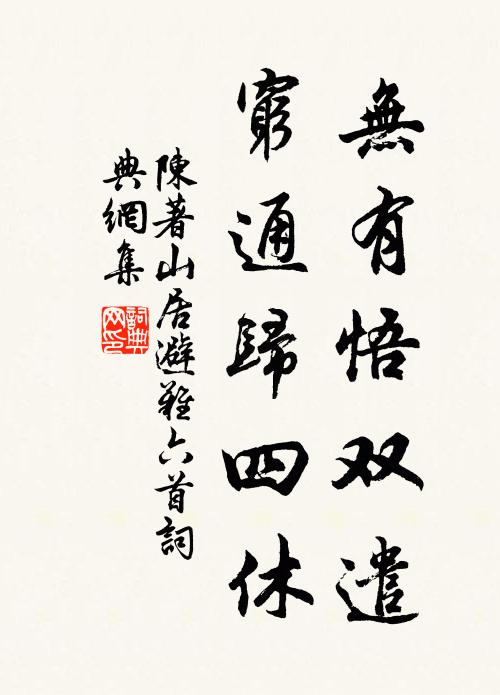 無有悟双遣
窮通歸四休
陳著山居避難六首詞
典網集
詞典网印